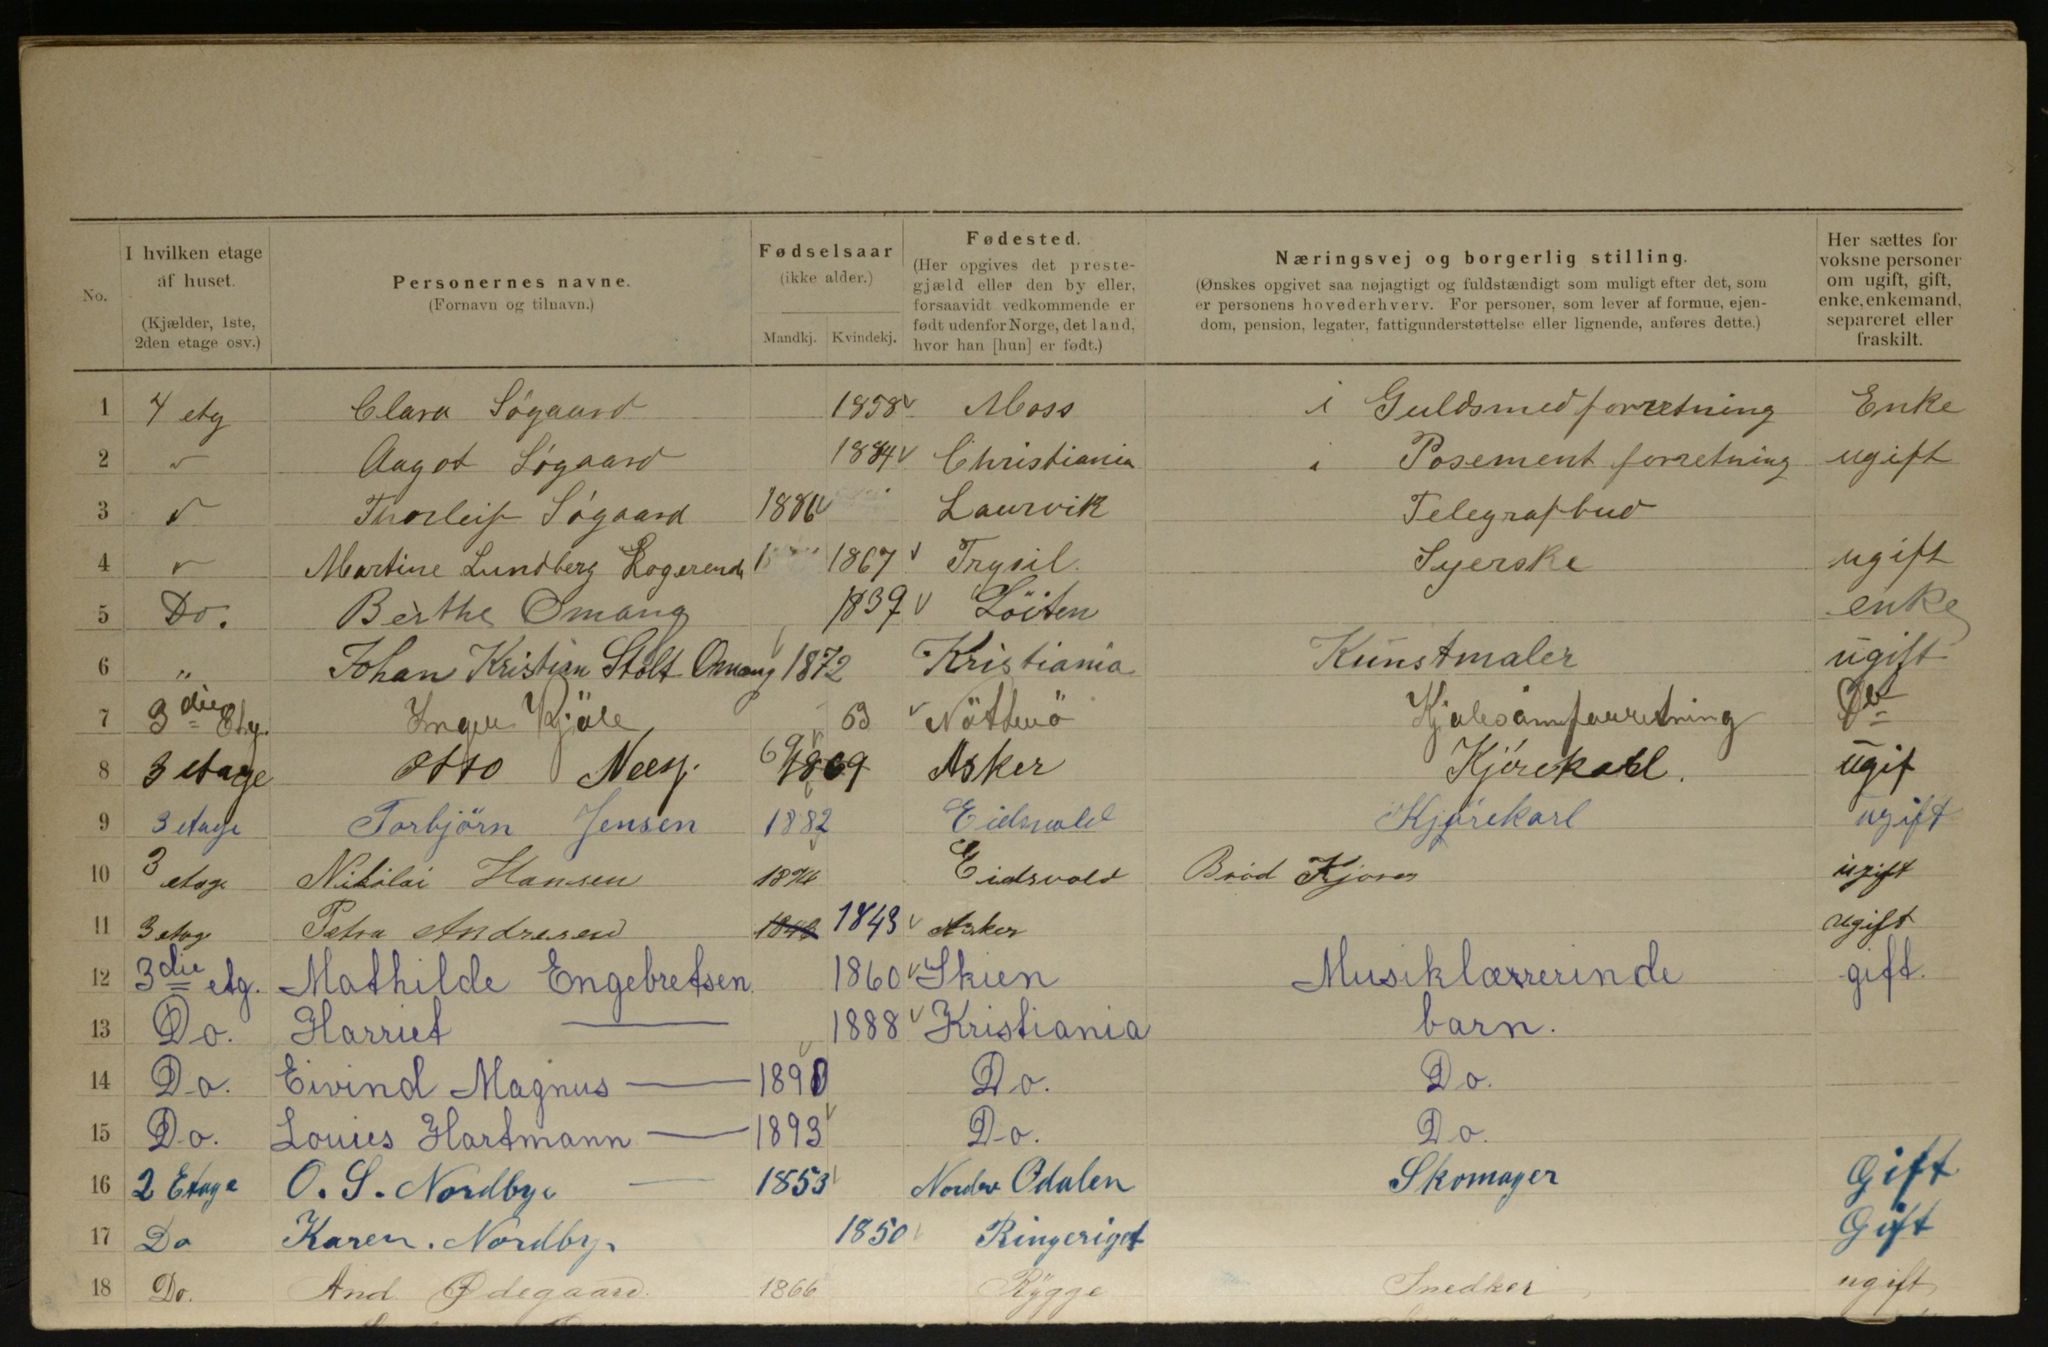 No.
I hvilken etage
af huset.
(Kjælder, 1ste,
2den etage osv.)
Personernes navne.
(Fornavn og tilnavn.)
Fødselsaar
(ikke alder.)
Mandkj. Kvindekj.
Fødested.
(Her opgives det preste-
gjæld eller den by eller,
forsaavidt vedkommende er
født udenfor Norge, det land,
hvor han [hun] er født.)
Næringsvej og borgerlig stilling.
(Ønskes opgivet saa nøjagtigt og fuldstændigt som muligt efter det, som
er personens hovederhverv. For personer, som lever af formue, ejen-
dom, pension, legater, fattigunderstøttelse eller lignende, anføres dette.)
Her sættes for
voksne personer
om ugift, gift,
enke, enkemand,
separeret eller
fraskilt.
1 4 etg Clara Søgaard 1858 Moss i Guldsmedforretning Enke
2 Aagot Søgaard 1884 Christiania i Posementforretning ugift
3 Thorleif Søgaard 1886 Laurvik Telegrafbud
4 Martine Lundberg Logerende 1867 Trysil Syerske ugift
5 Do. Berthe Omang 1839 Löiten enke
6 " Johan Kristian Stolt Omang 1872 Kristiania Kunstmaler ugift
7 3die Etg. Inger 63 Nötterö Do
8 3 etage Otto 69 1869 Asker Kjørekarl. ugif
9 3 etage Torbjörn Jensen 1882 Eidsvold Kjørekarl ugift
10 3 etage Nikolai Hansen Eidsvold Brød ugift
11 3 etag Petra Andresen 1843 Asker ugift
12 3die etg. Mathilde Engebretsen. 1860 Skien Musiklærrerinde gift.
13 Do. Harriet — 1888 Kristiania barn.
14 Do. Eivind Magnus — 1890 Do. Do.
15 Do. Louies Hartmann — 1893 Do. Do.
16 2 Etage O. S. Nordbye — 1853 Nordre Odalen Skomager Gift
17 Do Karen. Nordbye 1850 Ringeriget Gift
18 Do. And Ødegaard. 1866 Rygge Snedker ugift